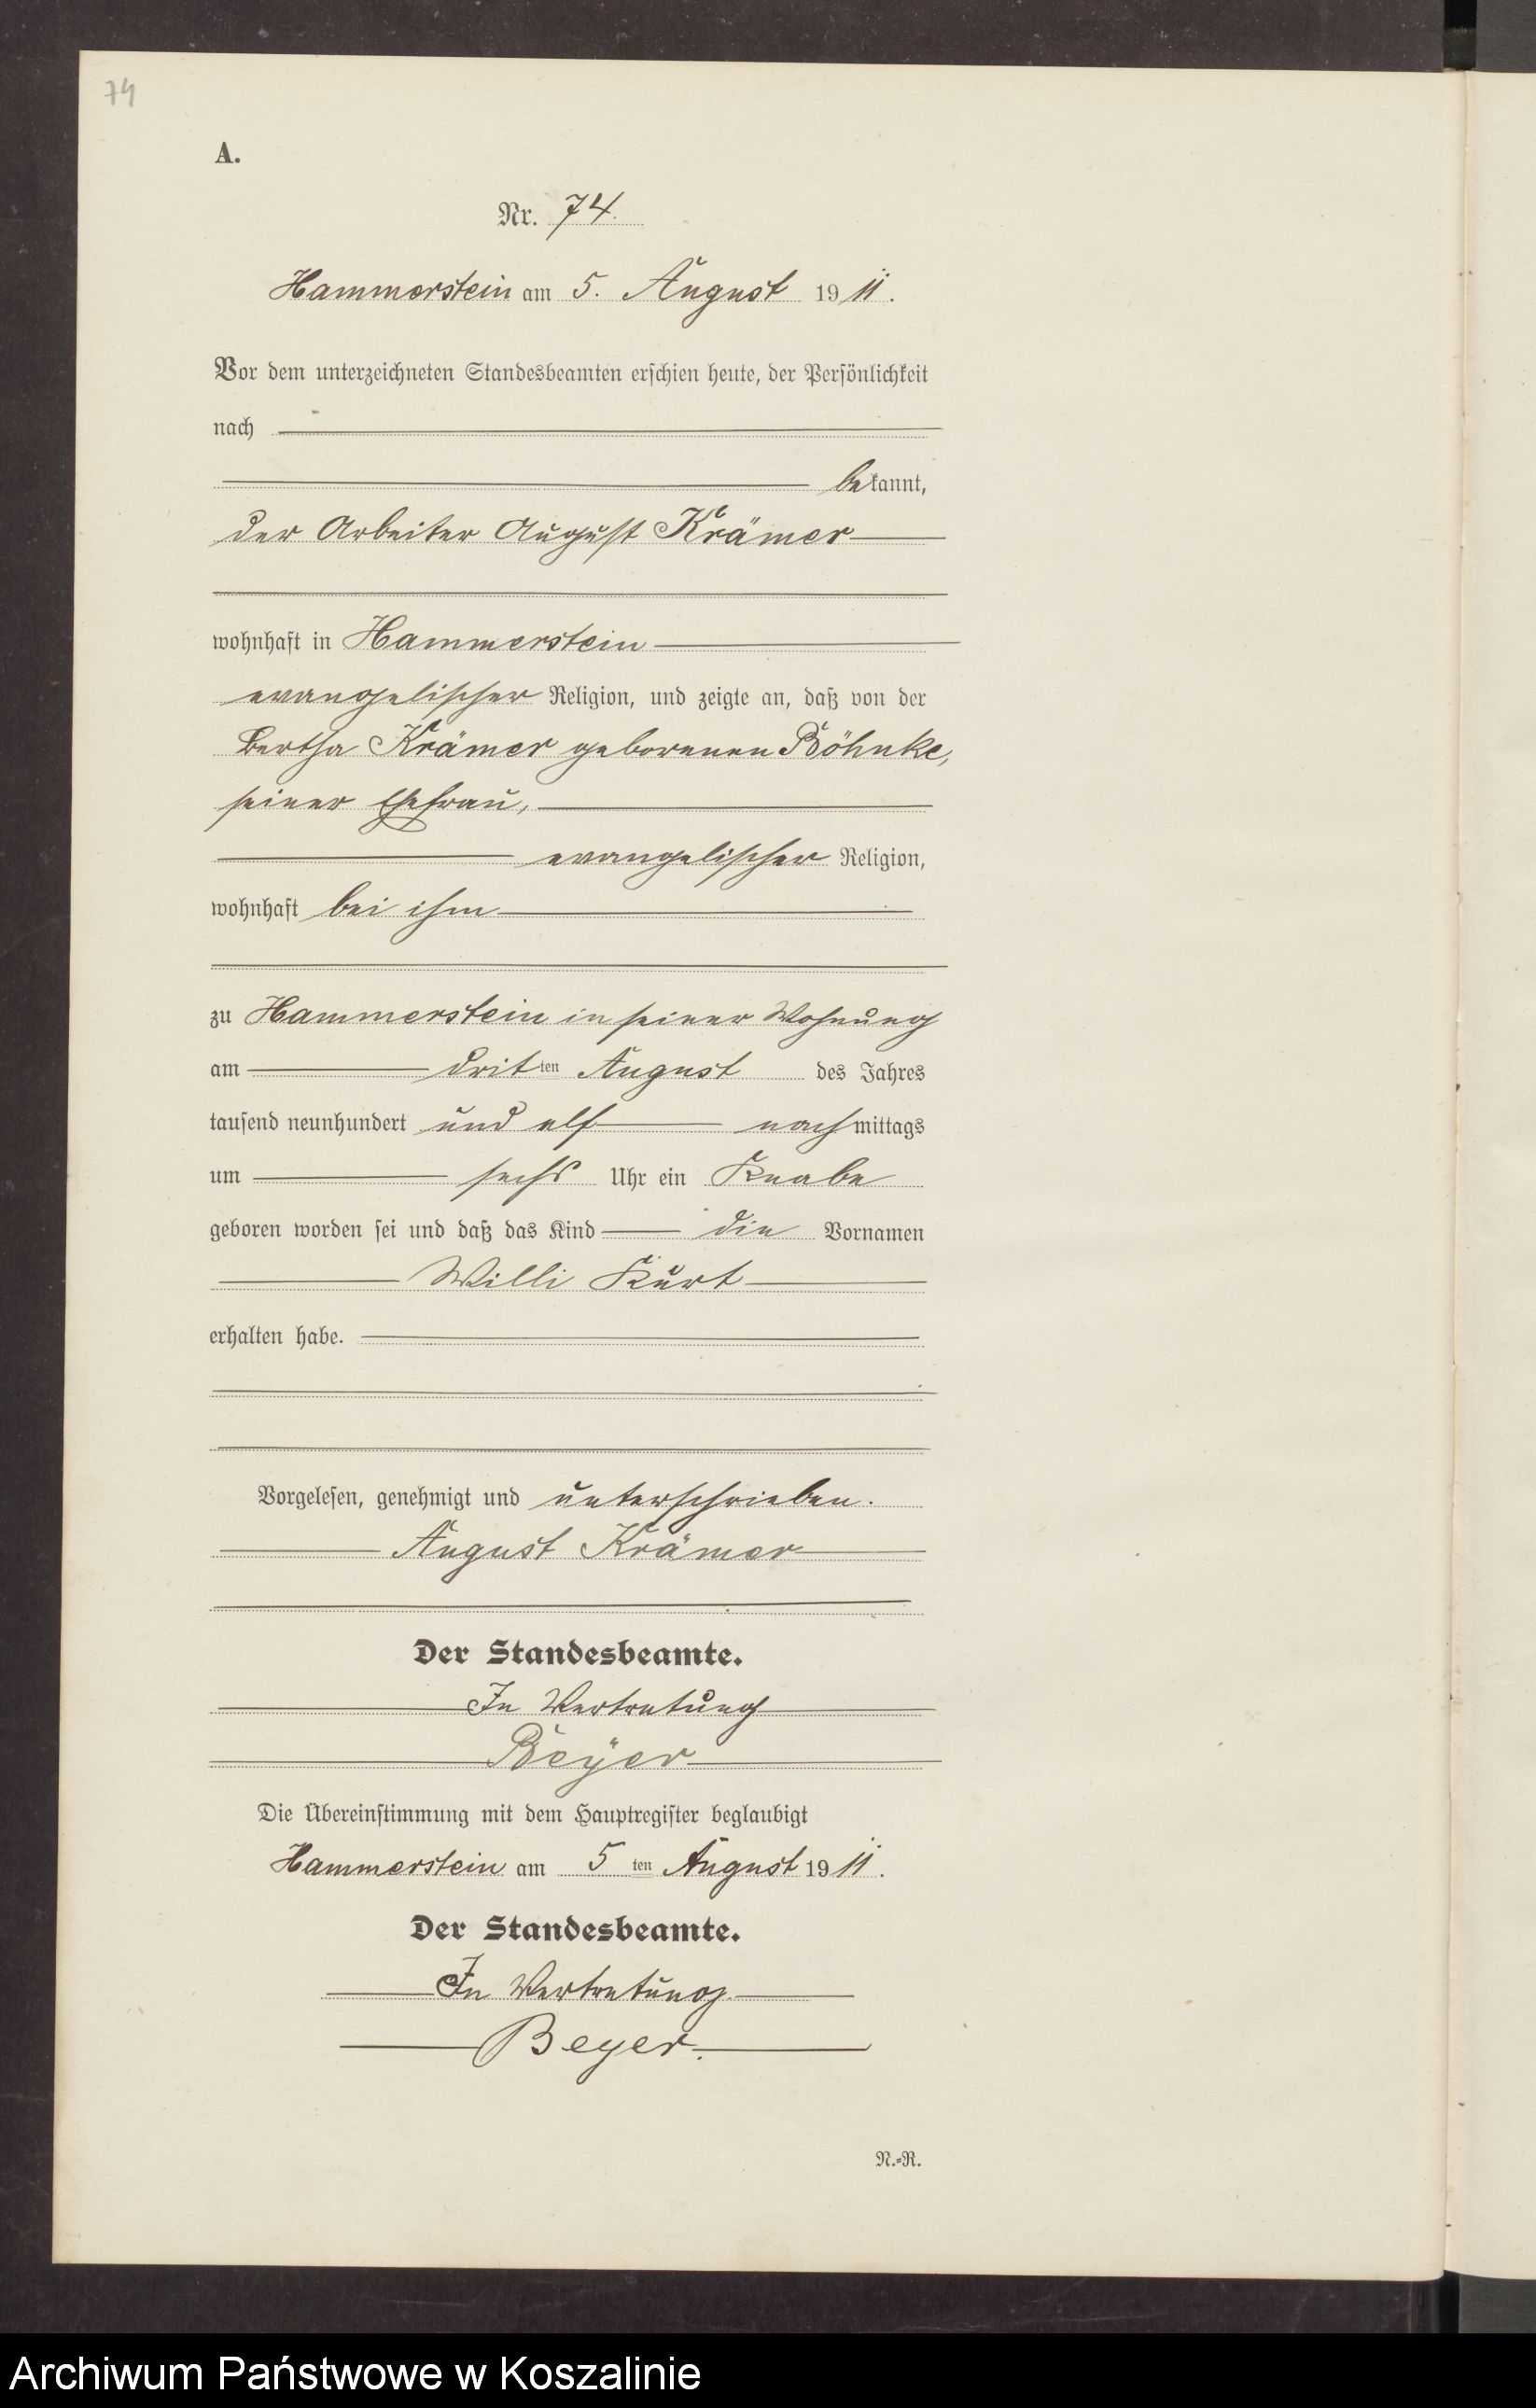 74
A.
Nr. 74.
Hammerstein am 5. August 1911.
Vor dem unterzeichneten Standesbeamten erschien heute, der Persönlichkeit
nach
bekannt,
der Arbeiter August Krämer
wohnhaft in Hammerstein
evangelischer Religion, und zeigte an, daß von der
Bertha Krämer geborenen Böhnke,
seiner Ehefrau,
evangelischer Religion,
wohnhaft bei ihm
zu Hammerstein in seiner Wohnung
am dritten August des Jahres
tausend neunhundert und elf nachmittags
um sechs Uhr ein Knabe
geboren worden sei und daß das Kind die Vornamen
Willi Kurt
erhalten habe.
Vorgelesen, genehmigt und unterschrieben.
August Krämer
Der Standesbeamte.
In Vertretung
Beyer
Die Übereinstimmung mit dem Hauptregister beglaubigt
Hammerstein am 5ten August 1911.
Der Standesbeamte.
In Vertretung.
Beyer.
N.=R.
Archiwum Państwowe w Koszalinie